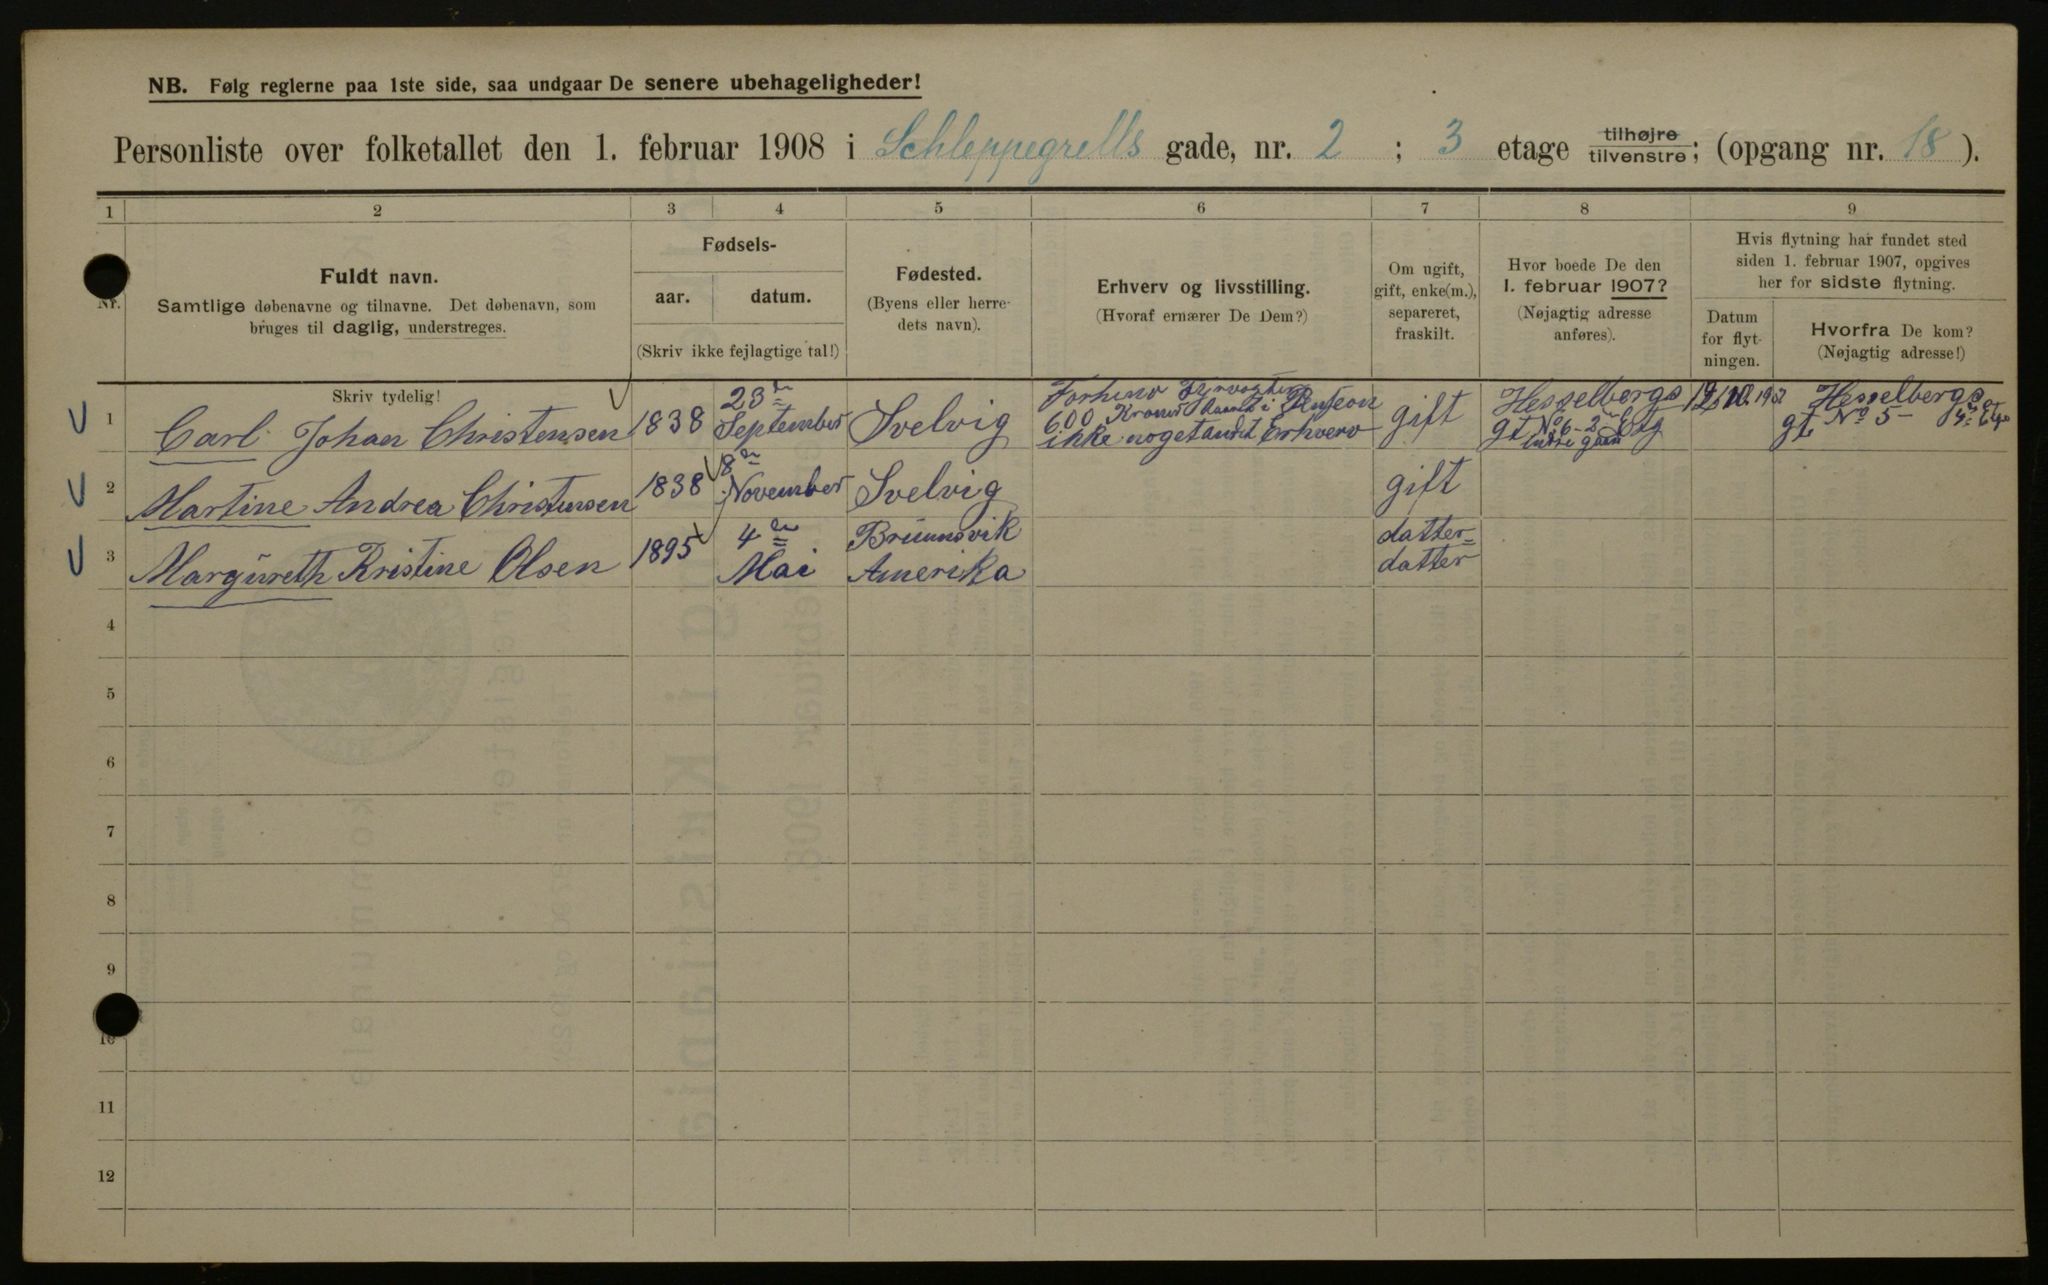 NB. Følg reglerne paa 1ste side, saa undgaar De senere ubehageligheder!
Personliste over folketallet den 1. februar 1908 i Schleppegrells gade, nr. 2 ; 3 etage tilhøjre tilvenstre; (opgang nr. 18 ).
1 2 3 4 5 6 7 8 9
Nr.
Fuldt navn.
Samtlige døbenavne og tilnavne. Det døbenavn, som
bruges til daglig, understreges.
Fødsels-
aar. datum.
(Skriv ikke fejlagtige tal!)
Fødested.
(Byens eller herre-
dets navn).
Erhverv og livsstilling.
(Hvoraf ernærer De Dem?)
Om ugift,
gift, enke(m.),
separeret,
fraskilt.
Hvor boede De den
1. februar 1907?
(Nøjagtig adresse
anføres).
Hvis flytning har fundet sted
siden 1. februar 1907, opgives
her for sidste flytning.
Datum
for flyt-
ningen.
Hvorfra De kom?
(Nøjagtig adresse!)
Skriv tydelig!
1 Carl Johan Christensen 1838
23de
September
Svelvig
600 Kroner
ikke noget andet Erhverv
gift
Hesselbergs
gt No 6 - 2 Etg
Hesselbergs
gt No 5
2 Martine Andrea Christensen 1838
8de
November
Svelvig
gift
3 Margureth Kristine Olsen 1895
4de
Mai
Brunnsvik
Amerika
datter-
datter
4
5
6
7
8
9
10
11
12